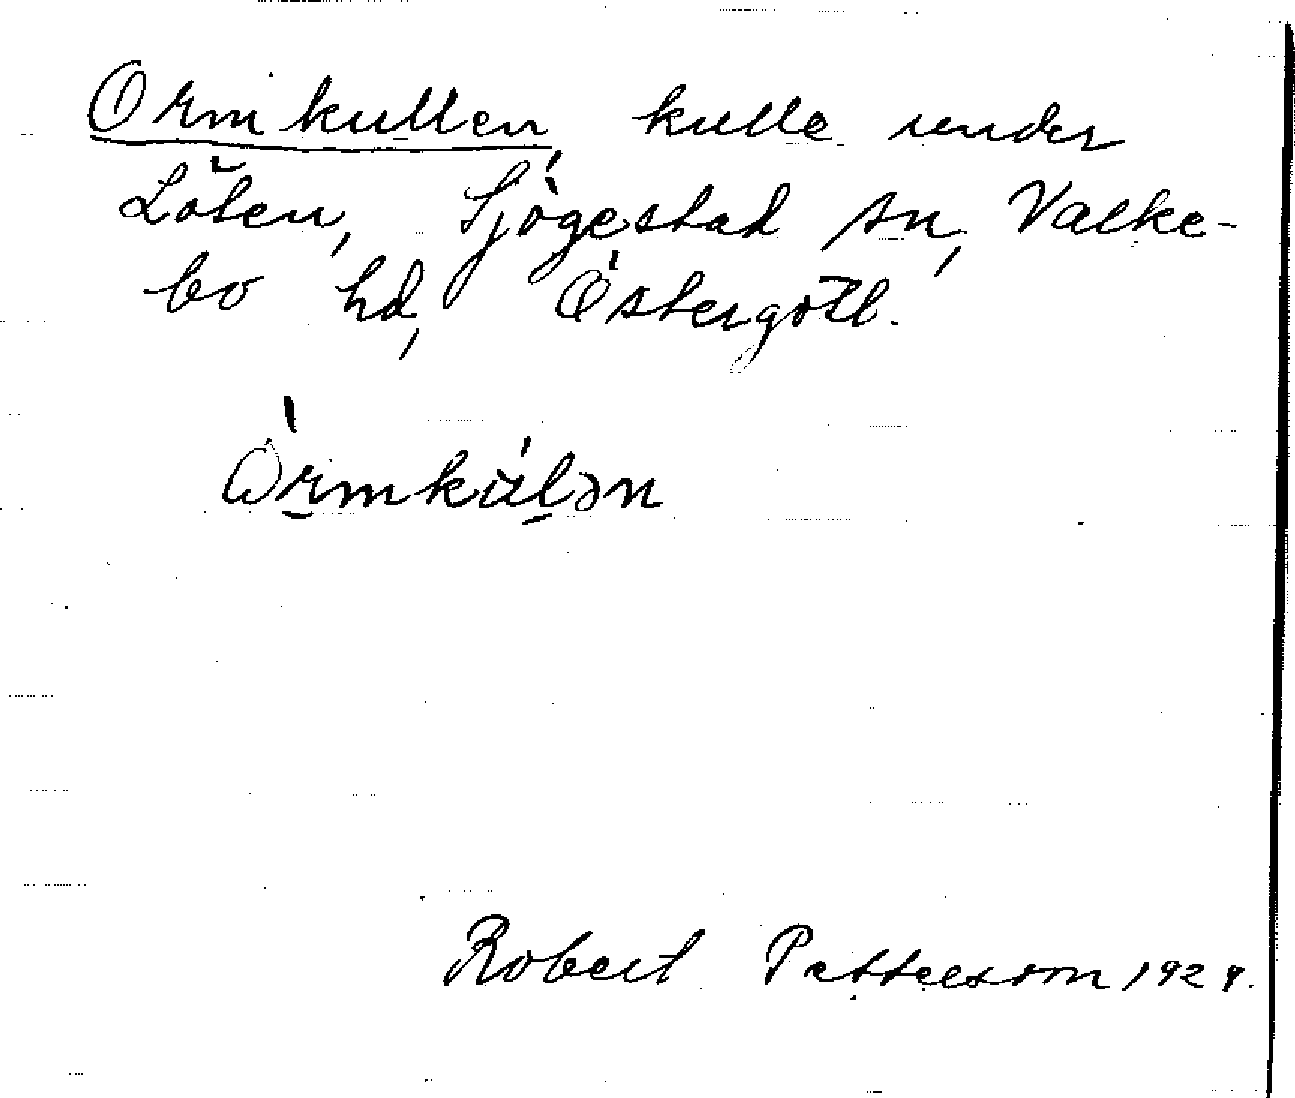 Ormkullen, kulle under
Löten, Sjögestad sn, Valke-
bo hd, Östergötl.
Òrmkúlən
Robert Petterson 1924.